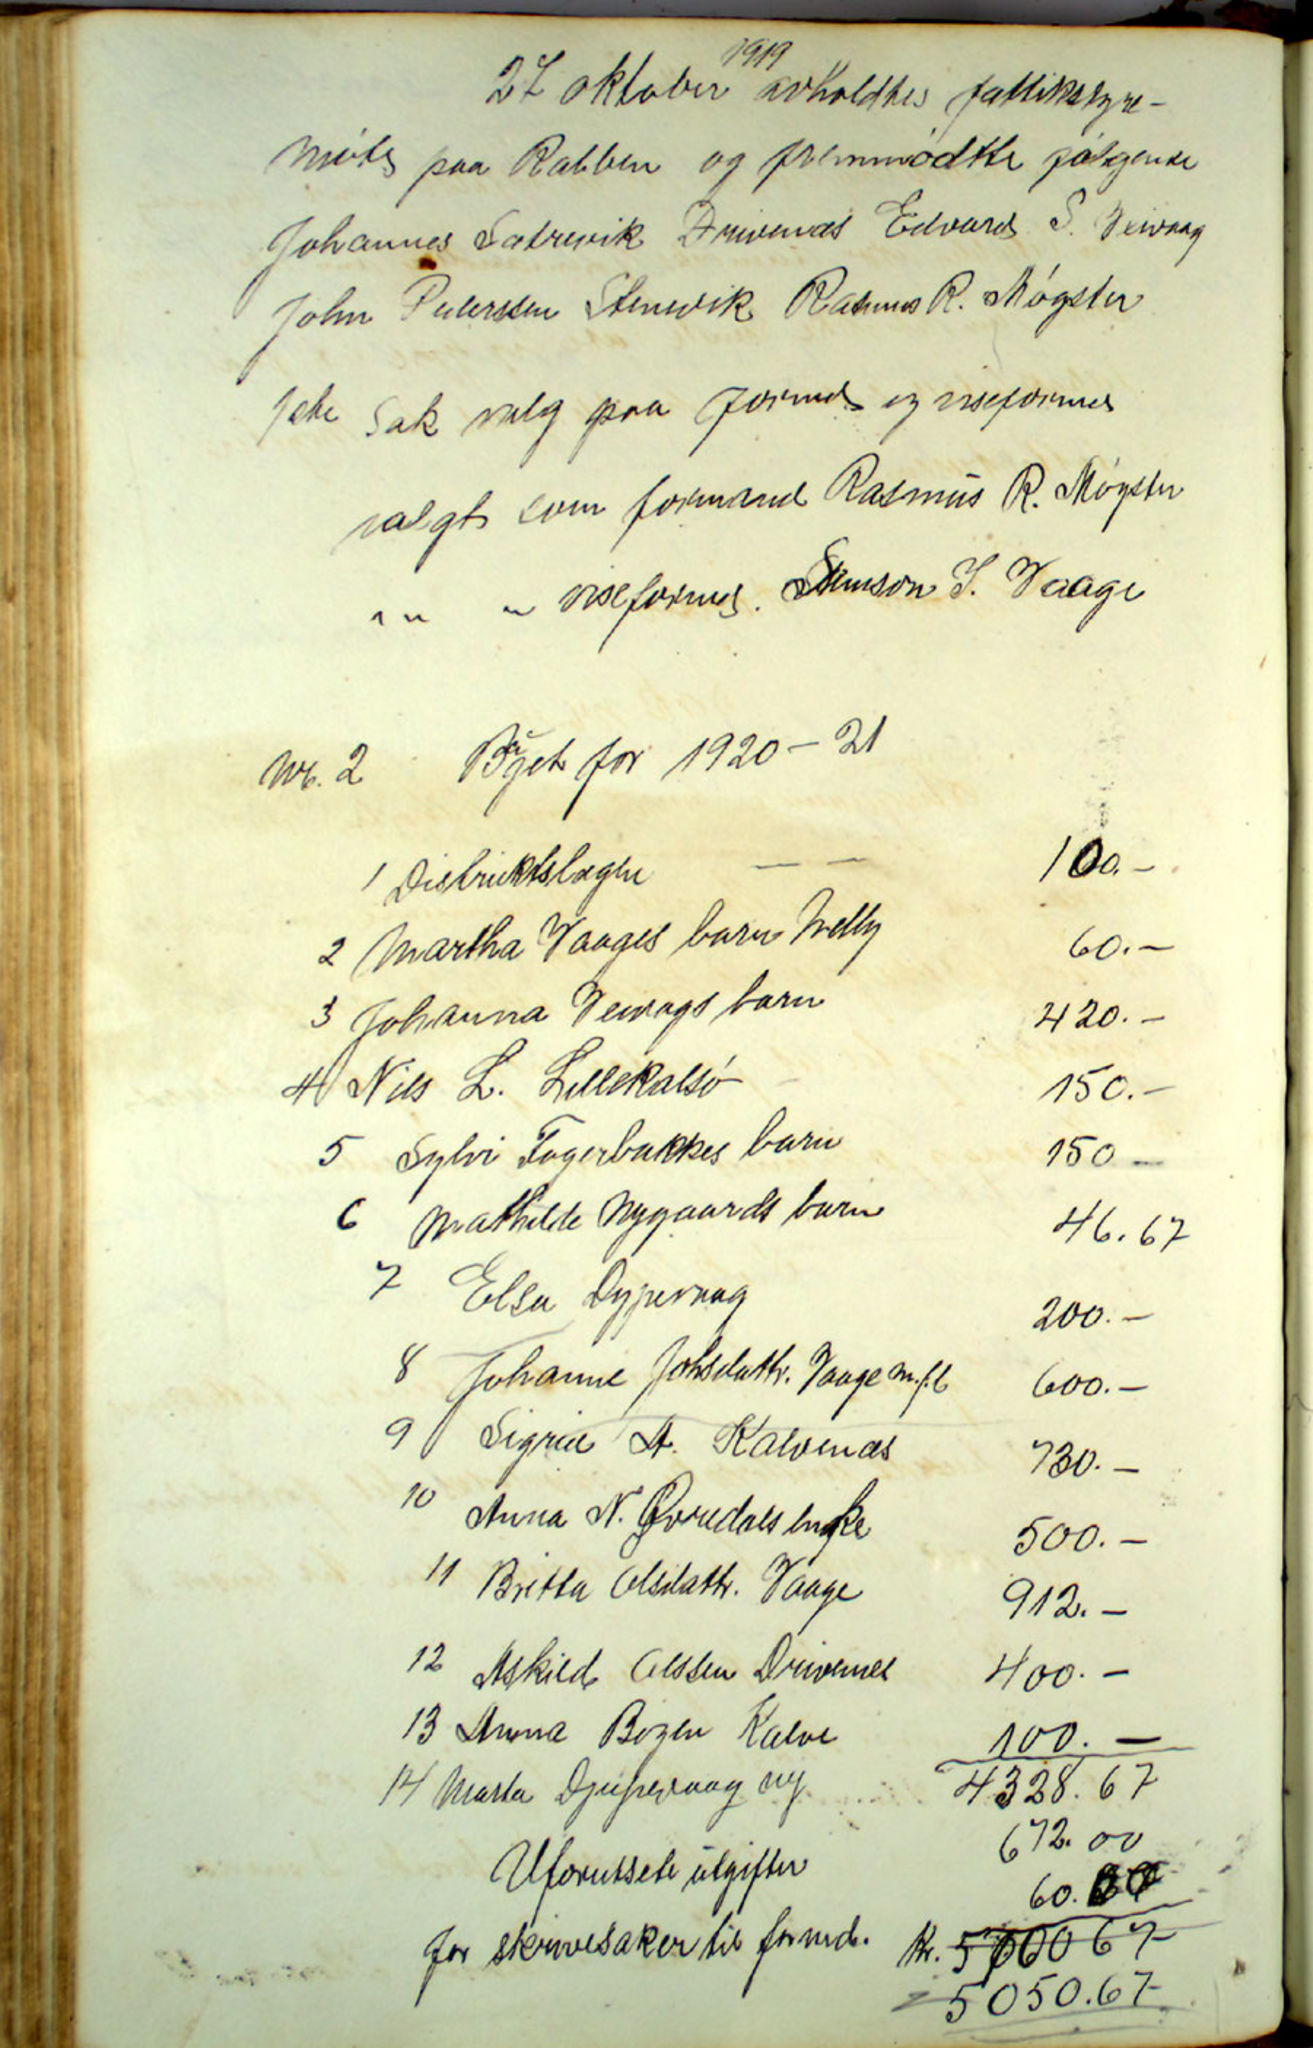 1919
27 oktober avholdtes fattikstyre-
møte paa Rabben og fremmødtte følgende
Johannes Sætrevik Drivenæs Edvard S. Veivaag
John Peterssen Stenevik Rasmus R. Møgster
1ste Sak valg paa formd og viseformd
valgt som formand Rasmus R. Møgster
" " " viseformd. Samson J. Vaage
Nr. 2 for 1920-21
1 Distriktslægen — — 100.-
2 Martha Vaages barn Nelly 60.-
3 Johanna Veivags barn 420.-
4 Nils L. Lillekalsø 150.-
5 Sylvi Fagerbakkes barn 150 -
6 Mathilde Nygaards barn 46.67
7 Elsa Dypevaag 200.-
8 Johanne Johsdattr. Vaage m.f.b 600.-
9 Sigrid A. Kalvenæs 730.-
10 Anna N. Øvredals enke 500.-
11 Britta Olsdattr. Vaage 912.-
12 Askild Olssen Drivenes 400.-
13 Anna Bozen Kalve 100. -
14 Marta Djupevaag ny 4328.67
Uforutsete utgifter 672.00
60.00
for skrivesaker til formd. Kr. 506067
5050.67